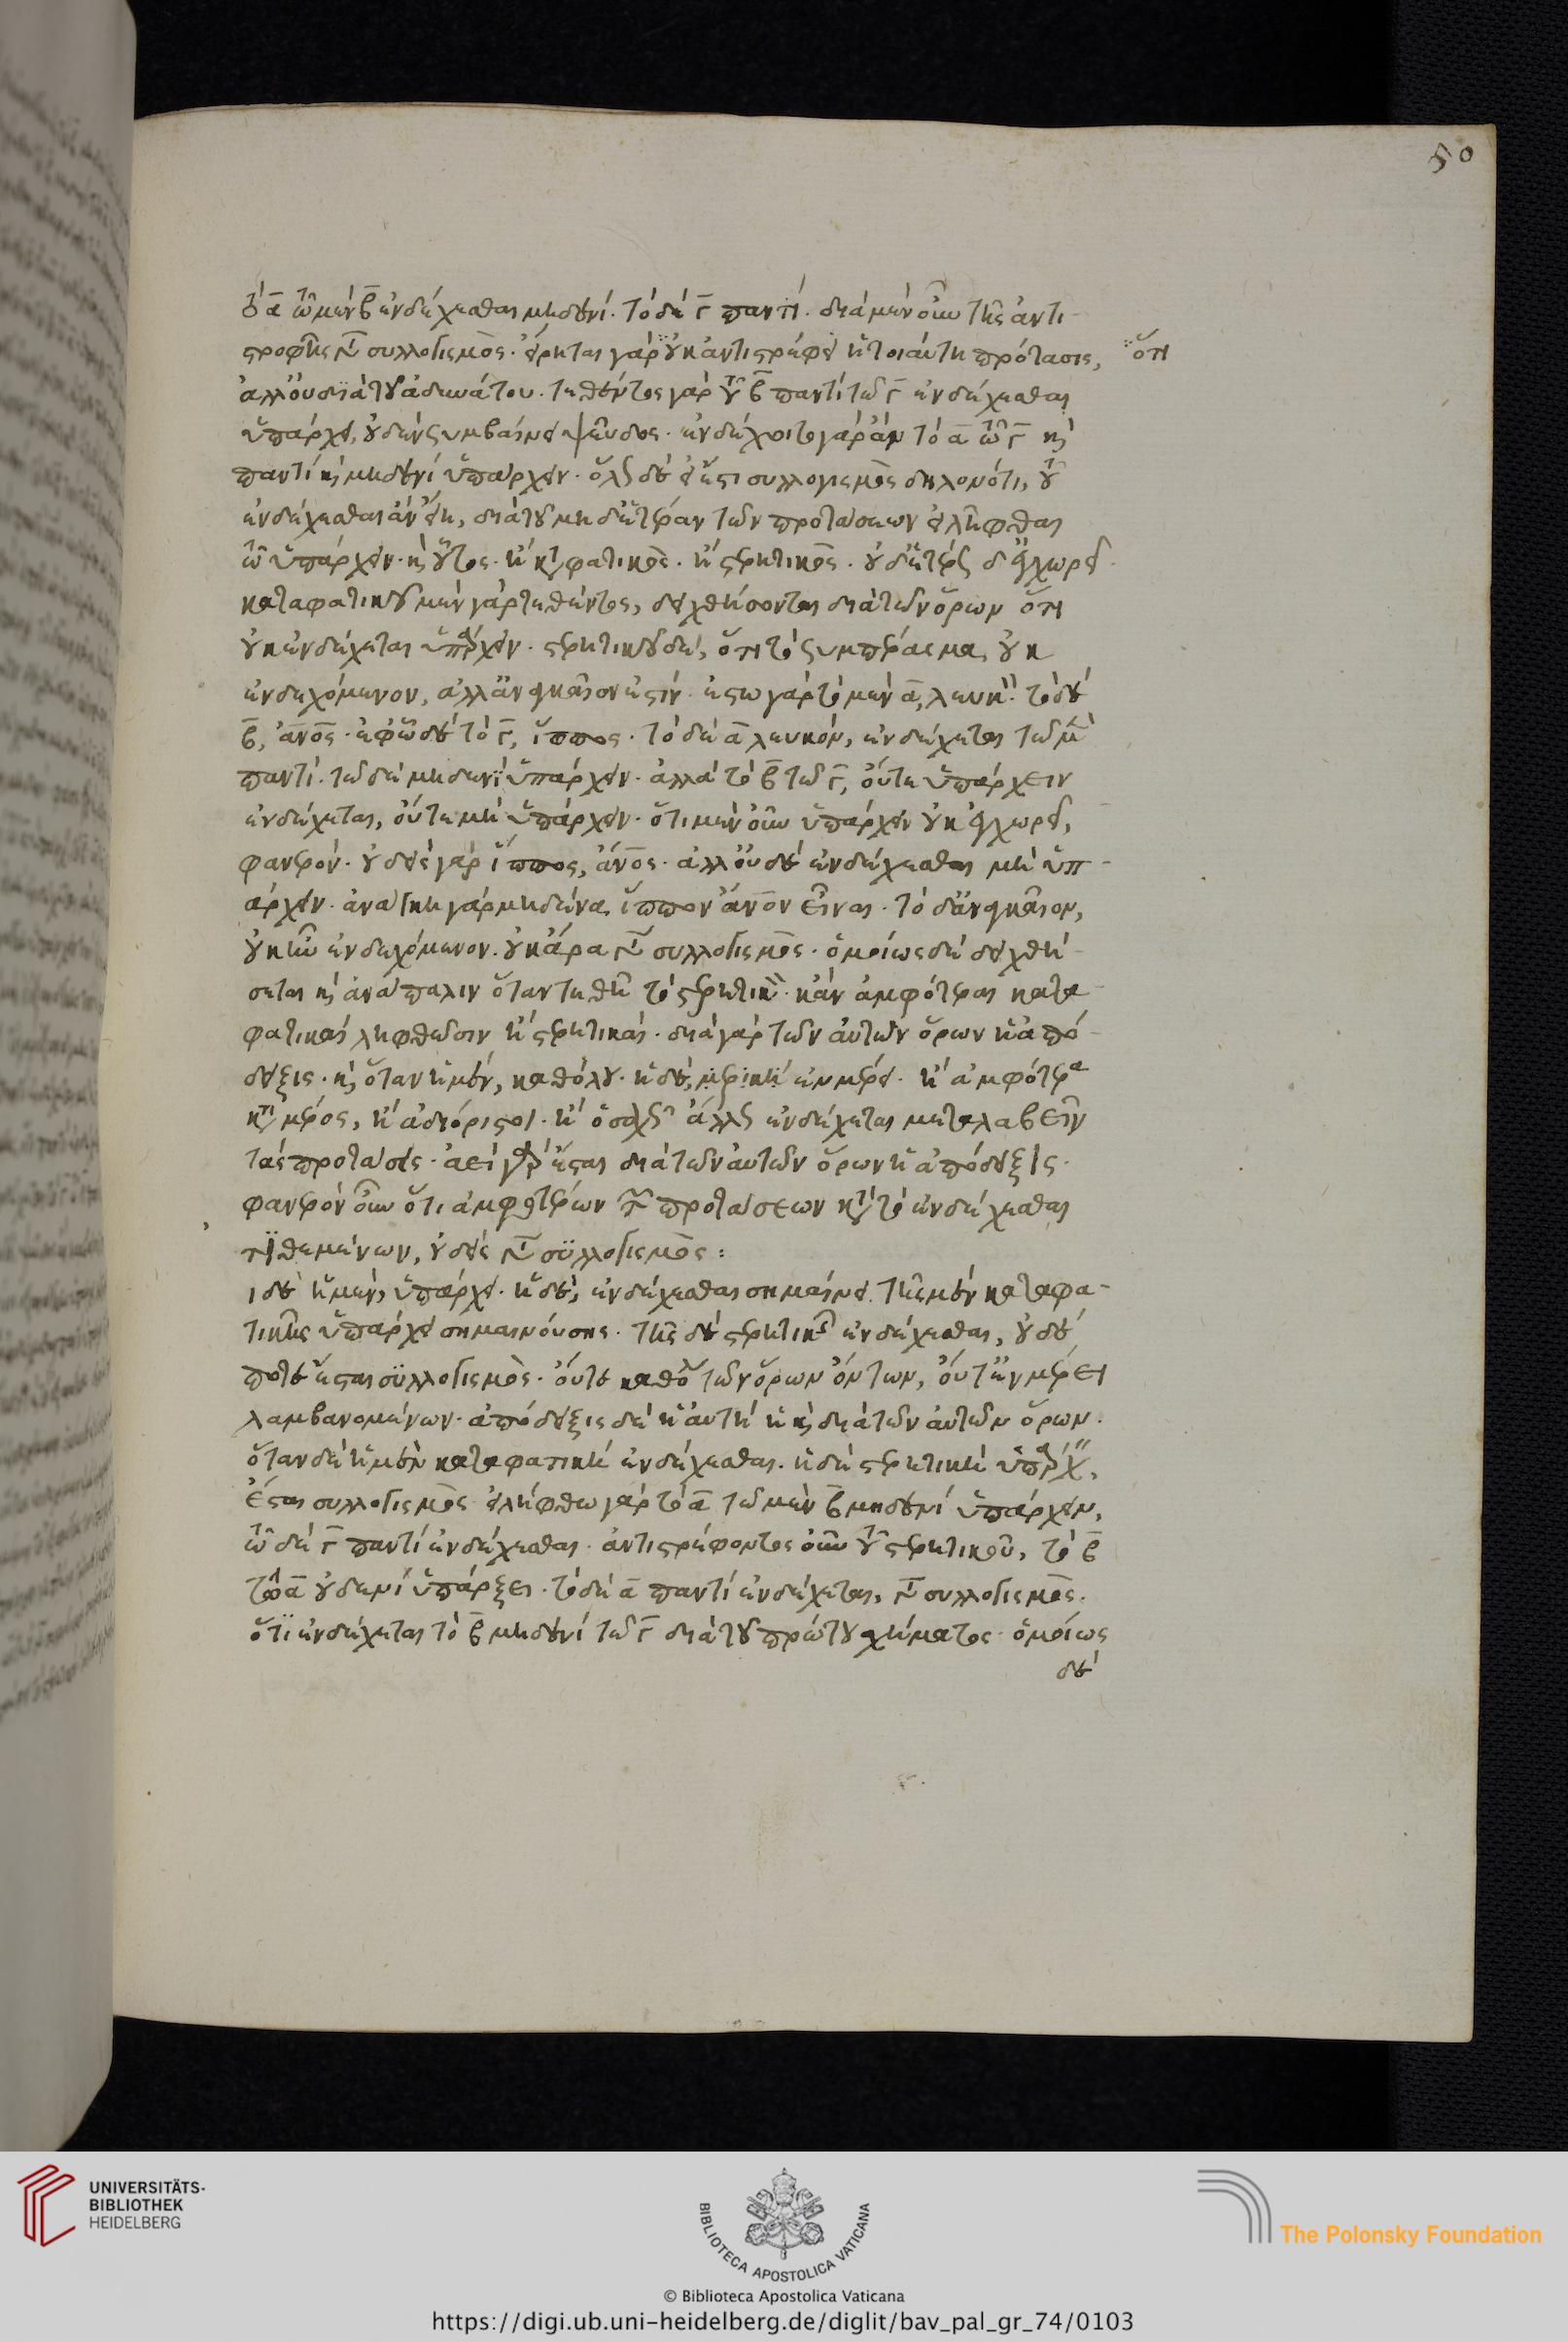 50
τὸ α τῶ μὲν β ἐνδέχεσθαι μηδενί· τὸ δὲ γ παντί· διὰ μὲν οὖν τῆς ἀντι-
στροφῆς οὐκ ἔσται συλλογισμός· εἴρηται γὰρ οὐκ ἀντιστρέφει ἡ τοιαύτη πρότασις,
ὅτι
ἀλλ' οὐδὲ διὰ τοῦ ἀδυνάτου· τεθέντος γὰρ τοῦ β παντὶ τῶ γ ἐνδέχεσθαι
ὑπάρχειν, οὐδὲν συμβαίνει ψεῦδος· ἐνδέχοιτο γὰρ ἂν τὸ α τῶ γ καὶ
παντὶ καὶ μηδενὶ ὑπάρχειν· ὅλως δὲ εἰ ἔστι συλλογισμὸς δηλονότι, τοῦ
ἐνδέχεσθαι ἂν εἴη, διὰ τὸ μηδετέραν τῶν προτάσεων εἰλῆφθαι
τῶ ὑπάρχειν· καὶ οὗτος· ἢ καταφατικὸς· ἢ στερητικός· οὐδετέρως δ' ἐγχωρεῖ·
καταφατικοῦ μὲν γὰρ τεθέντος, δειχθήσονται διὰ τῶν ὅρων ὅτι
οὐκ ἐνδέχεται ὑπάρχειν· στερητικοῦ δὲ, ὅτι τὸ συμπέρασμα οὐκ
ἐνδεχόμενον, ἀλλ' ἀναγκαῖον ἐστίν· ἔστω γὰρ τὸ μὲν α, λευκόν· τὸ δὲ
β, ἄνος· ἐφ' ὧ δὲ τὸ γ, ἵππος· τὸ δὲ α λευκόν, ἐνδέχεται τῶ μὲν
παντὶ· τῶ δὲ μηδενὶ ὑπάρχειν· ἀλλὰ τὸ β τῶ γ, οὔτε ὑπάρχειν
ἐνδέχεται, οὔτε μὴ ὑπάρχειν· ὅτι μὲν οὖν ὑπάρχειν οὐκ ἐγχωρεῖ,
φανερόν· οὐδεὶς γὰρ ἵππος, ἄνος· ἀλλ' οὐδὲ ἐνδέχεσθαι μὴ ὑπ-
άρχειν· ἀνάγκη γὰρ μηδένα ἵππον ἄνον εἶναι· τὸ δ' ἀναγκαῖον,
οὐκ ἦν ἐνδεχόμενον· οὐκ ἄρα γίνεται συλλογισμός· ὁμοίως δὲ δειχθή-
σεται καὶ ἀνάπαλιν ὅταν τεθῆ τὸ στερητικόν· κἂν ἀμφότεραι κατα-
φατικαὶ ληφθῶσιν ἢ στερητικαί· διὰ γὰρ τῶν αὐτῶν ὅρων ἡ ἀπό-
δειξις· καὶ ὅταν ἡ μὲν, καθόλου· ἡ δὲ, μερικὴ ἐν μέρει· ἢ ἀμφότεραι
κατὰ μέρος, ἢ ἀδιόριστοι· ἢ ὁσαχῶς ἄλλως ἐνδέχεται μεταλαβεῖν
τὰς προτάσεις· ἀεὶ γὰρ ἔσται διὰ τῶν αὐτῶν ὅρων ἡ ἀπόδειξις·
φανερὸν οὖν ὅτι ἀμφοτέρων τῶν προτάσεων κατὰ τὸ ἐνδέχεσθαι
τιθεμένων, οὐδεὶς γίνεται συλλογισμός:
ι δὲ ἡ μὲν, ὑπάρχει· ἡ δὲ, ἐνδέχεσθαι σημαίνει· τῆς μὲν καταφα-
τικῆς ὑπάρχει σημαινούσης· τῆς δὲ στερητικῆς ἐνδέχεσθαι, οὐδέ
ποτε ἔσται συλλογισμὸς· οὔτε καθόλου τῶν ὅρων ὄντων, οὔτ' ἐν μέρει
λαμβανομένων· ἀπόδειξις δὲ ἡ αὐτὴ ἢ καὶ διὰ τῶν αὐτῶν ὅρων·
ὅταν δὲ ἡ μὲν καταφατικὴ ἐνδέχεσθαι· ἡ δὲ στερητικὴ ὑπάρχειν,
ἔσται συλλογισμός· εἰλήφθω γὰρ τὸ α τῶ μὲν β μηδενὶ ὑπάρχειν,
τῶ δὲ γ παντὶ ἐνδέχεσθαι· ἀντιστρέφοντος οὖν τοῦ στερητικοῦ, τὸ β
τῶ α οὐδενὶ ὑπάρξει· τὸ δὲ α παντὶ ἐνδέχεται, γίνεται συλλογισμός·
ὅτι ἐνδέχεται τὸ β μηδενὶ τῶ γ διὰ τοῦ πρώτου σχήματος· ὁμοίως
δὲ
UNIVERSITÄTS-
BIBLIOTHEK
HEIDELBERG
BIBLIOTECA APOSTOLICA VATICANA
The Polonsky Foundation
© Biblioteca Apostolica Vaticana
https://digi.ub.uni-heidelberg.de/diglit/bav_pal_gr_74/0103